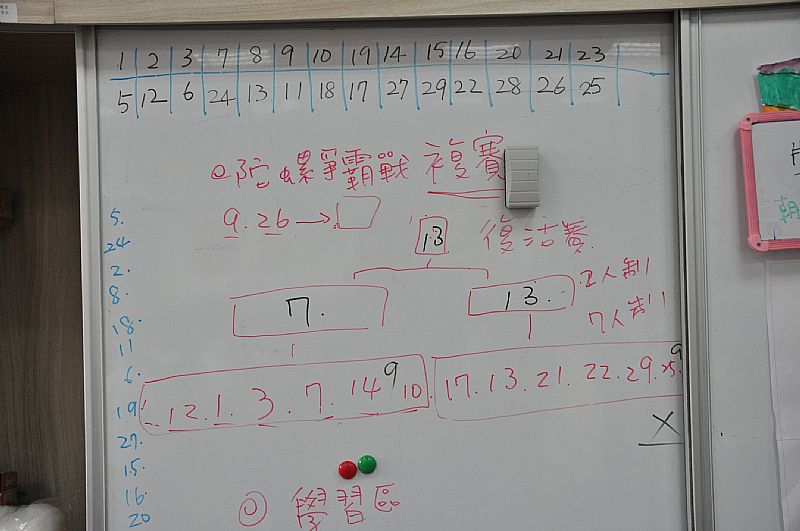 1 2 3 7 8 9 10 19 14 15 16 20 21 23
5 12 6 24 13 11 18 17 27 29 22 28 26 25
陀螺爭霸戰 複賽
9.26→
13 復活賽
7. 13. 2人制
7人制
12.1.3.7.14 9 10. 17.13.21.22.29.25. 9
X
5.
24
2.
8.
18.
11
6.
19.
27.
15.
16.
20
學習區
朝